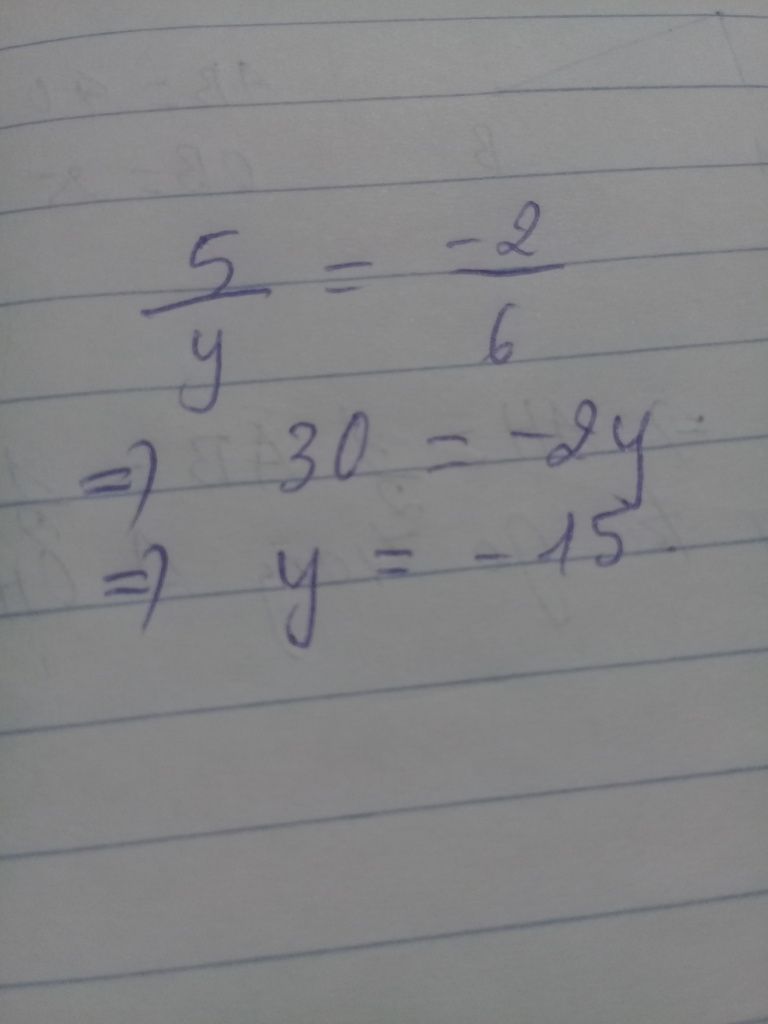 5/y = -2/6
⇒ 30 = -2y
⇒ y = -15